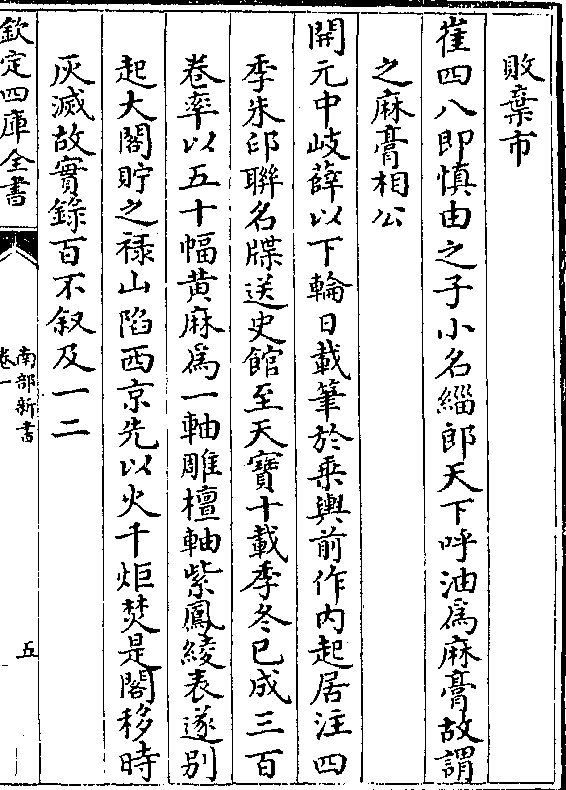 敗棄市
崔四八即慎由之子小名緇郎天下呼油為麻膏故謂
之麻膏相公
開元中岐薛以下輪日載筆於乗輿前作内起居注四
季朱印聯名牒送史館至天寳十載季冬已成三百
卷率以五十幅黄麻為一軸雕檀軸紫鳳綾表遂别
起大閣貯之禄山陷西京先以火千炬焚是閣移時
灰滅故實錄百不叙及一二
欽定四庫全書
南部新書
卷一
五